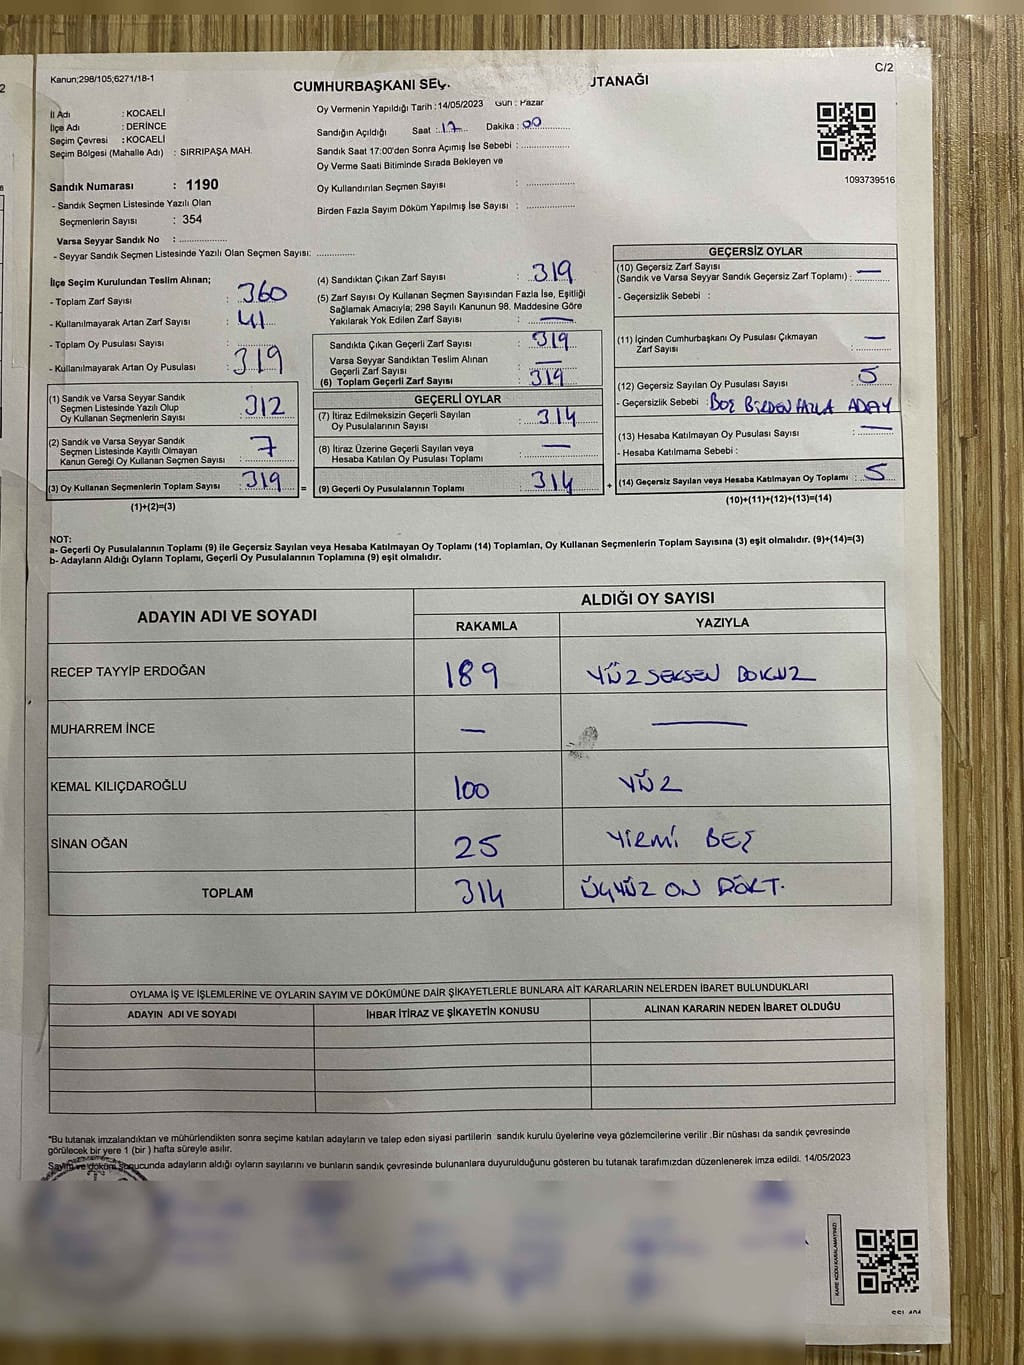 C/2
Kanun;298/105,6271/18-1
CUMHURBAŞKANI SEÇ. UTANAĞI
İl Adı : KOCAELİ
İlçe Adı : DERİNCE
Seçim Çevresi : KOCAELİ
Seçim Bölgesi (Mahalle Adı) : SIRRIPAŞA MAH.
Sandık Numarası : 1190
- Sandık Seçmen Listesinde Yazılı Olan
Seçmenlerin Sayısı : 354
Varsa Seyyar Sandık No : ....................
- Seyyar Sandık Seçmen Listesinde Yazılı Olan Seçmen Sayısı: ...............
Oy Vermenin Yapıldığı Tarih : 14/05/2023 Gün : Pazar
Sandığın Açıldığı Saat : 17 Dakika : 00
Sandık Saat 17:00'den Sonra Açımış İse Sebebi : ....................
Oy Verme Saati Bitiminde Sırada Bekleyen ve
Oy Kullandırılan Seçmen Sayısı : ....................
Birden Fazla Sayım Döküm Yapılmış İse Sayısı : ....................
1093739516
İlçe Seçim Kurulundan Teslim Alınan;
- Toplam Zarf Sayısı : 360
- Kullanılmayarak Artan Zarf Sayısı : 41
- Toplam Oy Pusulası Sayısı : ...........
- Kullanılmayarak Artan Oy Pusulası : 319
(1) Sandık ve Varsa Seyyar Sandık
Seçmen Listesinde Yazılı Olup
Oy Kullanan Seçmenlerin Sayısı : 312
(2) Sandık ve Varsa Seyyar Sandık
Seçmen Listesinde Kayıtlı Olmayan
Kanun Gereği Oy Kullanan Seçmen Sayısı : 7
(3) Oy Kullanan Seçmenlerin Toplam Sayısı : 319
(1)+(2)=(3)
=
(4) Sandıktan Çıkan Zarf Sayısı : 319
(5) Zarf Sayısı Oy Kullanan Seçmen Sayısından Fazla İse, Eşitliği
Sağlamak Amacıyla; 298 Sayılı Kanunun 98. Maddesine Göre
Yakılarak Yok Edilen Zarf Sayısı : —
Sandıkta Çıkan Geçerli Zarf Sayısı : 319
Varsa Seyyar Sandıktan Teslim Alınan
Geçerli Zarf Sayısı : —
(6) Toplam Geçerli Zarf Sayısı : 319
GEÇERLİ OYLAR
(7) İtiraz Edilmeksizin Geçerli Sayılan
Oy Pusulalarının Sayısı : 314
(8) İtiraz Üzerine Geçerli Sayılan veya
Hesaba Katılan Oy Pusulası Toplamı : —
(9) Geçerli Oy Pusulalarının Toplamı : 314
+
GEÇERSİZ OYLAR
(10) Geçersiz Zarf Sayısı
(Sandık ve Varsa Seyyar Sandık Geçersiz Zarf Toplamı) : —
- Geçersizlik Sebebi :
(11) İçinden Cumhurbaşkanı Oy Pusulası Çıkmayan
Zarf Sayısı : —
(12) Geçersiz Sayılan Oy Pusulası Sayısı : 5
- Geçersizlik Sebebi : BOŞ BİRDEN FAZLA ADAY
(13) Hesaba Katılmayan Oy Pusulası Sayısı : —
- Hesaba Katılmama Sebebi :
(14) Geçersiz Sayılan veya Hesaba Katılmayan Oy Toplamı : 5
(10)+(11)+(12)+(13)=(14)
NOT:
a- Geçerli Oy Pusulalarının Toplamı (9) ile Geçersiz Sayılan veya Hesaba Katılmayan Oy Toplamı (14) Toplamları, Oy Kullanan Seçmenlerin Toplam Sayısına (3) eşit olmalıdır. (9)+(14)=(3)
b- Adayların Aldığı Oyların Toplamı, Geçerli Oy Pusulalarının Toplamına (9) eşit olmalıdır.
ADAYIN ADI VE SOYADI ALDIĞI OY SAYISI
RAKAMLA YAZIYLA
RECEP TAYYİP ERDOĞAN 189 YÜZ SEKSEN DOKUZ
MUHARREM İNCE — —
KEMAL KILIÇDAROĞLU 100 YÜZ
SİNAN OĞAN 25 YİRMİ BEŞ
TOPLAM 314 ÜÇYÜZ ON DÖRT.
OYLAMA İŞ VE İŞLEMLERİNE VE OYLARIN SAYIM VE DÖKÜMÜNE DAİR ŞİKAYETLERLE BUNLARA AİT KARARLARIN NELERDEN İBARET BULUNDUKLARI
ADAYIN ADI VE SOYADI İHBAR İTİRAZ VE ŞİKAYETİN KONUSU ALINAN KARARIN NEDEN İBARET OLDUĞU
*Bu tutanak imzalandıktan ve mühürlendikten sonra seçime katılan adayların ve talep eden siyasi partilerin sandık kurulu üyelerine veya gözlemcilerine verilir .Bir nüshası da sandık çevresinde
görülecek bir yere 1 (bir ) hafta süreyle asılır.
Sayım ve döküm sonucunda adayların aldığı oyların sayılarını ve bunların sandık çevresinde bulunanlara duyurulduğunu gösteren bu tutanak tarafımızdan düzenlenerek imza edildi. 14/05/2023
KARE KODU KARALAMAYINIZ!